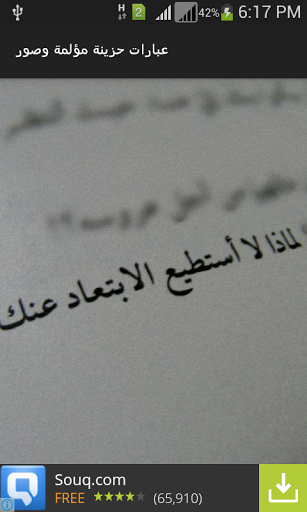 H 2 42% 6:17 PM
عبارات حزينة مؤلمة وصور
لماذا لا أستطيع الابتعاد عنك
Souq.com
FREE (65,910)